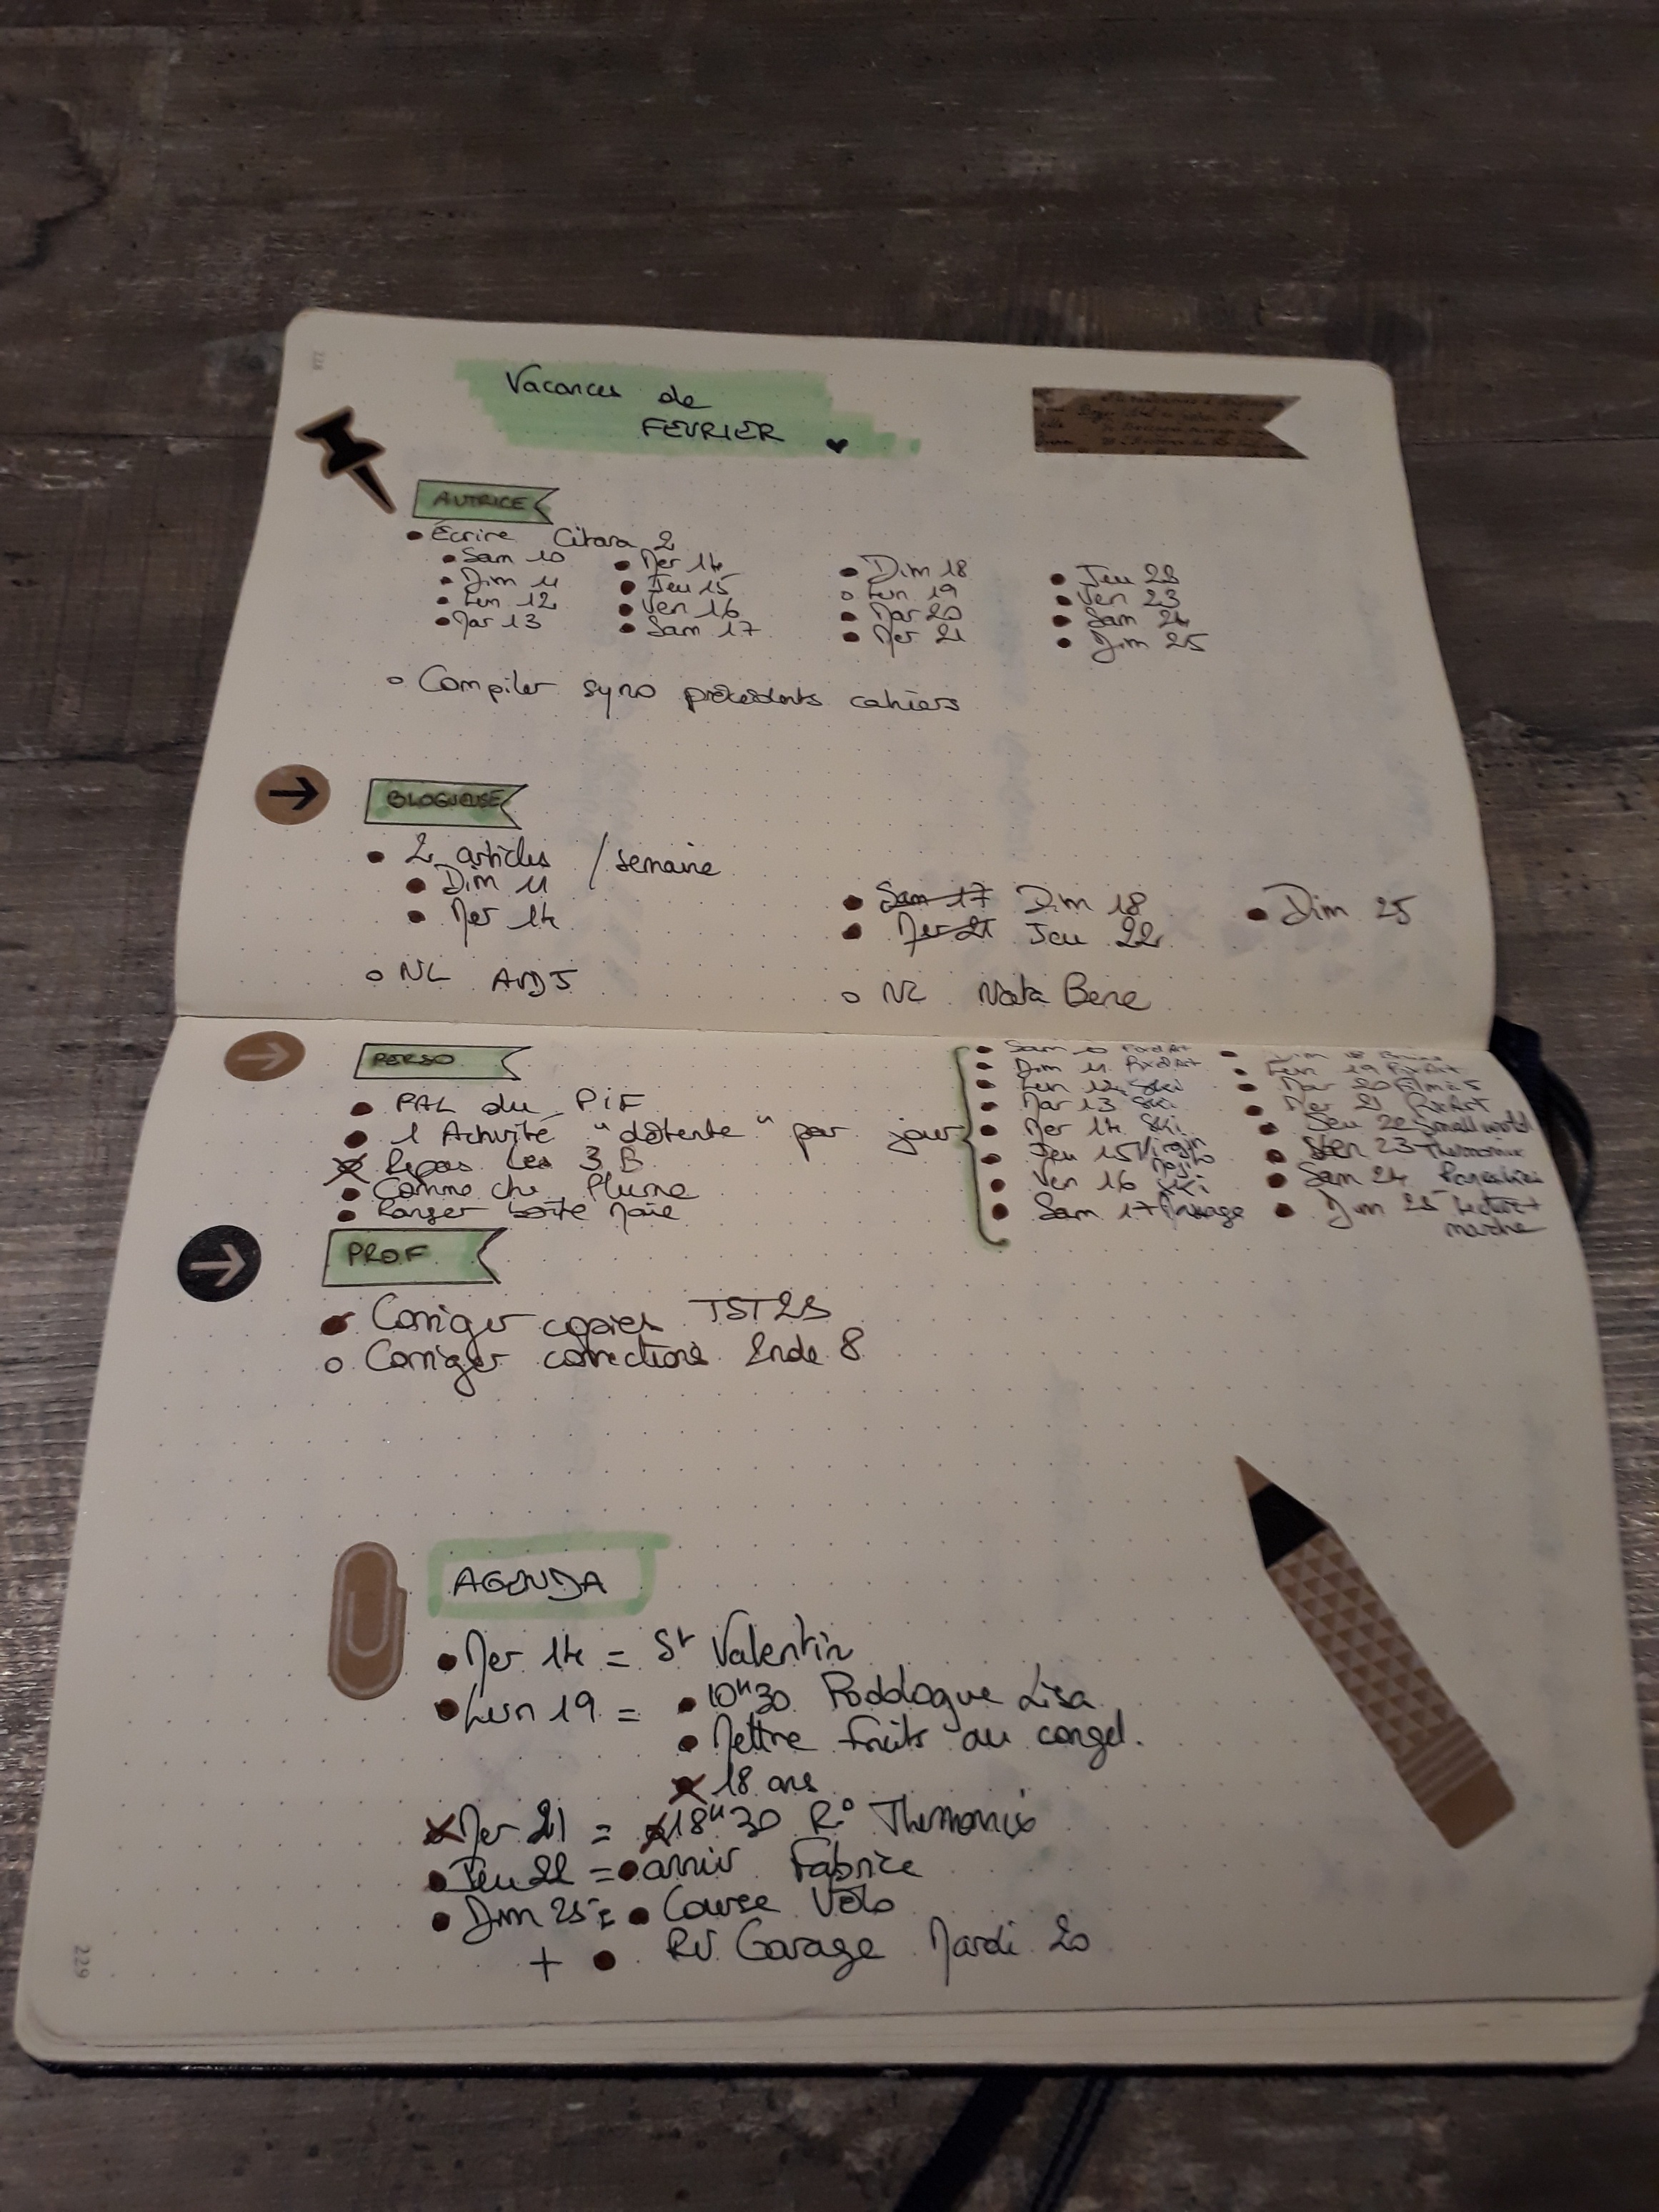 Vacances de
FEVRIER
AUTRICE
Écrire Citara 2
Sam 10
Dim 11
Lun 12
Mar 13
Mer 14
Jeu 15
Ven 16
Sam 17
Dim 18
Lun 19
Mar 20
Mer 21
Jeu 22
Ven 23
Sam 24
Dim 25
Compiler syno précédents cahiers
BLOGUEUSE
2 articles / semaine
Dim 11
Mer 14
Sam 17 Dim 18
Mer 21 Jeu 22
Dim 25
NL
NL Nota Bene
PERSO
PAL du PIF
1 Activité "détente" par jour
Repas Les 3 B
Comme che Plume
Ranger boîte
Sam 10
Dim 11 Pixel Art
Lun 12 Ski
Mar 13 Ski
Mer 14 Ski
Jeu 15
Ven 16 Ski
Sam 17 Massage
Dim 18
Lun 19 Pix Art
Mar 20 Film
Mer 21 Pix Art
Jeu 22 Small world
Ven 23 Thermomix
Sam 24
Dim 25 Lecture +
marche
PROF
Corriger copies TST2S
Corriger corrections 2nde 8
AGENDA
Mer 14 = St Valentin
Lun 19 = 10H30 Podologue Lisa
Mettre fruits au congel.
18 ans
Mer 21 = 18H30 R° Thermomix
Jeu 22 = anniv Fabrice
Dim 25 = Course Vélo
+ RV Garage Mardi 20
229